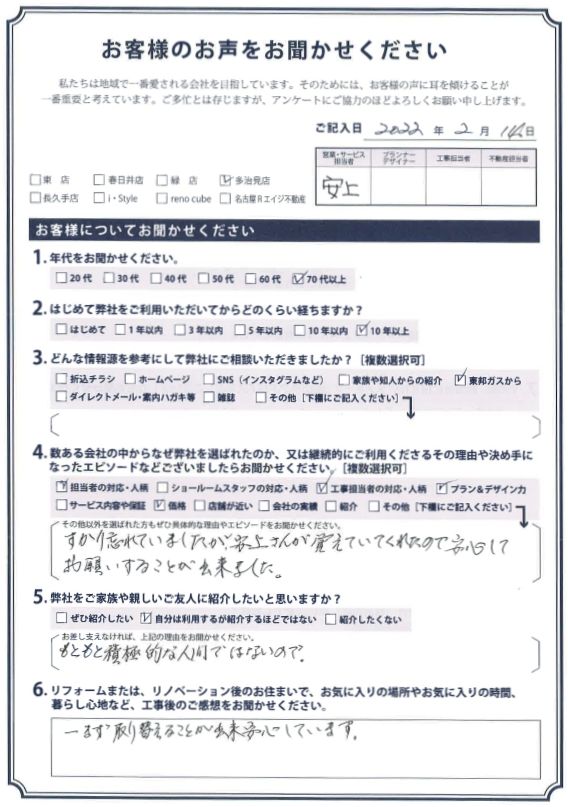 お客様のお声をお聞かせください
私たちは地域で一番愛される会社を目指しています。そのためには、お客様の声に耳を傾けることが
一番重要と考えています。ご多忙とは存じますが、アンケートにご協力のほどよろしくお願い申し上げます。
ご記入日 2022 年 2 月 14日
営業・サービス担当者 プランナーデザイナー 工事担当者 不動産担当者
安上
□東 店 □春日井店 □緑 店 ☑多治見店
□長久手店 □i・Style □reno cube □名古屋Rエイジ不動産
お客様についてお聞かせください
1. 年代をお聞かせください。
□20代 □30代 □40代 □50代 □60代 ☑70代以上
2. はじめて弊社をご利用いただいてからどのくらい経ちますか？
□はじめて □1年以内 □3年以内 □5年以内 □10年以内 ☑10年以上
3. どんな情報源を参考にして弊社にご相談いただきましたか？［複数選択可］
□折込チラシ □ホームページ □SNS（インスタグラムなど） □家族や知人からの紹介 ☑東邦ガスから
□ダイレクトメール・案内ハガキ等 □雑誌 □その他［下欄にご記入ください］
4. 数ある会社の中からなぜ弊社を選ばれたのか、又は継続的にご利用くださるその理由や決め手に
なったエピソードなどございましたらお聞かせください。［複数選択可］
☑担当者の対応・人柄 □ショールームスタッフの対応・人柄 ☑工事担当者の対応・人柄 ☑プラン＆デザイン力
□サービス内容や保証 ☑価格 □店舗が近い □会社の実績 □紹介 □その他［下欄にご記入ください］
その他以外を選ばれた方もぜひ具体的な理由やエピソードをお聞かせください。
すかり忘れていましたが、安上さんが覚えていてくれたので安心して
お願いすることが出来ました。
5. 弊社をご家族や親しいご友人に紹介したいと思いますか？
□ぜひ紹介したい ☑自分は利用するが紹介するほどではない □紹介したくない
お差し支えなければ、上記の理由をお聞かせください。
もともと積極的な人間ではないので。
6. リフォームまたは、リノベーション後のお住まいで、お気に入りの場所やお気に入りの時間、
暮らし心地など、工事後のご感想をお聞かせください。
一まず取り替えることが出来安心しています。